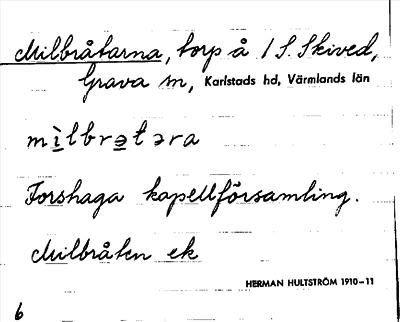 Milbråtarna, torp å 1 S. Skived,
Grava sn, Karlstads hd, Värmlands län
mìlbrətəra
Forshaga kapellförsamling.
Milbråten ek
HERMAN HULTSTRÖM 1910–11
6